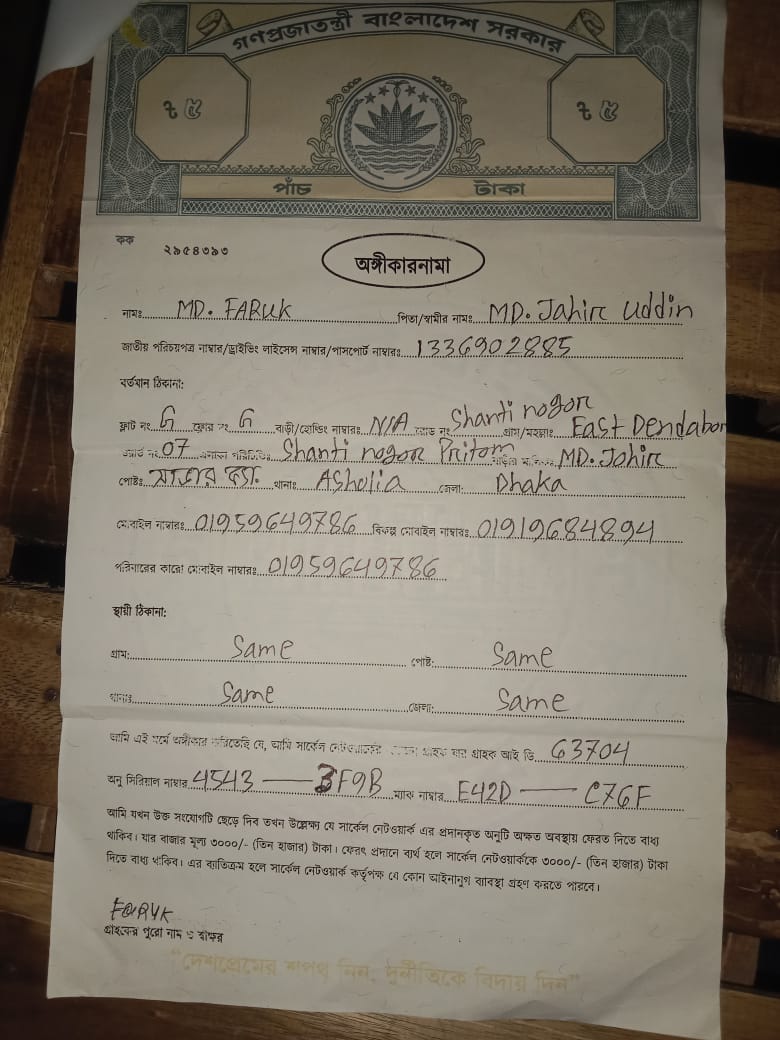 গণপ্রজাতন্ত্রী বাংলাদেশ সরকার
৳ ৫ ৳ ৫
পাঁচ টাকা
কক ২৯৫৪৩৯৩
অঙ্গীকারনামা
নামঃ MD. FARUK পিতা/স্বামীর নামঃ MD. Jahir Uddin
জাতীয় পরিচয়পত্র নাম্বার/ড্রাইভিং লাইসেন্স নাম্বার/পাসপোর্ট নাম্বারঃ 1336902885
বর্তমান ঠিকানা:
ফ্লাট নং G ফ্লোর নং G বাড়ী/হোল্ডিং নাম্বারঃ N/A রোড নং Shanti nogor গ্রাম/মহল্লাঃ East Dendabor
ওয়ার্ড নং 07 এলাকা পরিচিতিঃ Shanti nogor Pritom বাড়ির মালিক MD. Johir
পোষ্টঃ থানাঃ Asholia জেলা: Dhaka
মোবাইল নাম্বারঃ 01959649786 বিকল্প মোবাইল নাম্বারঃ 01919684894
পরিবারের কারো মোবাইল নাম্বারঃ 01959649786
স্থায়ী ঠিকানা:
গ্রাম: Same পোষ্ট: Same
থানাঃ Same জেলা: Same
আমি এই মর্মে অঙ্গীকার করিতেছি যে, আমি সার্কেল নেটওয়ার্কের গ্রাহক যার গ্রাহক আই ডি 63704
অনু সিরিয়াল নাম্বার 4543 — 3F9B ম্যাক নাম্বার E42D — C76F
আমি যখন উক্ত সংযোগটি ছেড়ে দিব তখন উল্লেক্ষ্য যে সার্কেল নেটওয়ার্ক এর প্রদানকৃত অনুটি অক্ষত অবস্থায় ফেরত দিতে বাধ্য
থাকিব। যার বাজার মূল্য ৩০০০/- (তিন হাজার) টাকা। ফেরৎ প্রদানে ব্যর্থ হলে সার্কেল নেটওয়ার্ককে ৩০০০/- (তিন হাজার) টাকা
দিতে বাধ্য থাকিব। এর ব্যতিক্রম হলে সার্কেল নেটওয়ার্ক কর্তৃপক্ষ যে কোন আইনানুগ ব্যাবস্থা গ্রহণ করতে পারবে।
FARUK
গ্রাহকের পুরো নাম ও স্বাক্ষর
"দেশপ্রেমের শপথ নিন, দুর্নীতিকে বিদায় দিন"